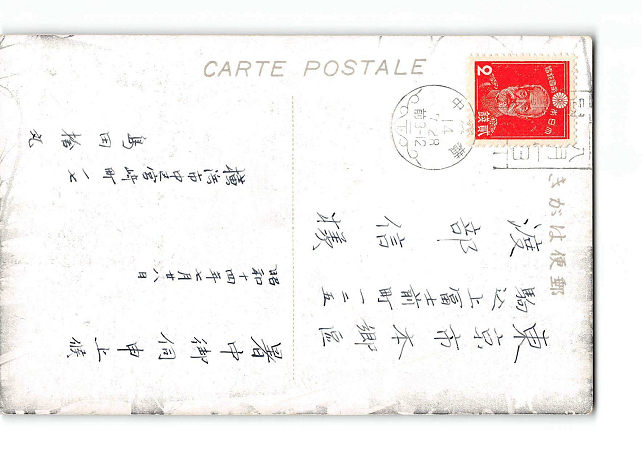 CARTE POSTALE
郵便はがき
東京市本郷區
駒込上富士前町一二五
渡部信様
暑中御伺申上候
昭和十四年七月廿八日
横浜市中区宮崎町一七
大日本帝國郵便
貳錢
2
14
7.28
前8-12